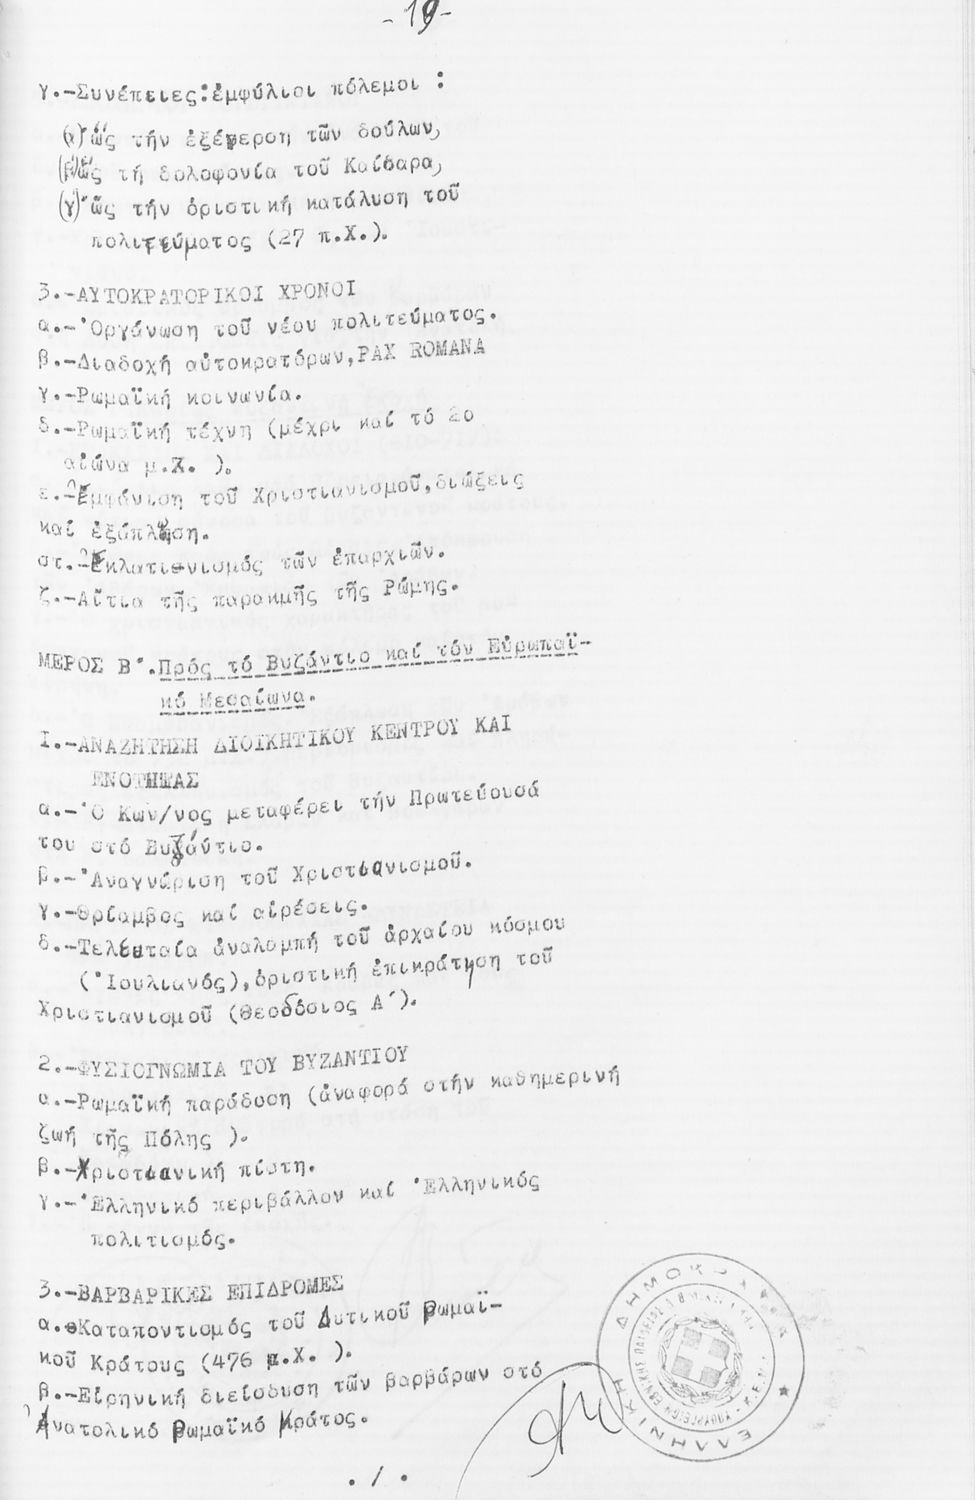 -19-
γ.-Συνέπειες:ἐμφύλιοι πόλεμοι :
(α) ὥς τήν ἐξέγερση τῶν δούλων,
(β) ὥς τή δολοφονία τοῦ Καίσαρα,
(γ) ὥς τήν ὁριστική κατάλυση τοῦ
πολιτεύματος (27 π.Χ.).
3.-ΑΥΤΟΚΡΑΤΟΡΙΚΟΙ ΧΡΟΝΟΙ
α.-'Οργάνωση τοῦ νέου πολιτεύματος.
β.-Διαδοχή αὐτοκρατόρων,PAX ROMANA
γ.-Ρωμαϊκή κοινωνία.
δ.-Ρωμαϊκή τέχνη (μέχρι καί τό 2ο
αἰώνα μ.Χ. ).
ε.-'Εμφάνιση τοῦ Χριστιανισμοῦ,διώξεις
καί ἐξάπλωση.
στ.-'Εκλατινισμός τῶν ἐπαρχιῶν.
ζ.-Αἴτια τῆς παρακμῆς τῆς Ρώμης.
ΜΕΡΟΣ Β΄.Πρός τό Βυζάντιο καί τόν Εὐρωπαϊ-
κό Μεσαίωνα.
Ι.-ΑΝΑΖΗΤΗΣΗ ΔΙΟΙΚΗΤΙΚΟΥ ΚΕΝΤΡΟΥ ΚΑΙ
ΕΝΟΤΗΤΑΣ
α.-'Ο Κων/νος μεταφέρει τήν Πρωτεύουσά
του στό Βυζάντιο.
β.-'Αναγνώριση τοῦ Χριστιανισμοῦ.
γ.-Θρίαμβος καί αἱρέσεις.
δ.-Τελευταία ἀναλαμπή τοῦ ἀρχαίου κόσμου
('Ιουλιανός),ὁριστική ἐπικράτηση τοῦ
Χριστιανισμοῦ (Θεοδόσιος Α΄).
2.-ΦΥΣΙΟΓΝΩΜΙΑ ΤΟΥ ΒΥΖΑΝΤΙΟΥ
α.-Ρωμαϊκή παράδοση (ἀναφορά στήν καθημερινή
ζωή τῆς Πόλης ).
β.-Χριστιανική πίστη.
γ.-'Ελληνικό περιβάλλον καί 'Ελληνικός
πολιτισμός.
3.-ΒΑΡΒΑΡΙΚΕΣ ΕΠΙΔΡΟΜΕΣ
α.-Καταποντισμός τοῦ Δυτικοῦ Ρωμαϊ-
κοῦ Κράτους (476 μ.Χ. ).
β.-Εἰρηνική διείσδυση τῶν βαρβάρων στό
'Ανατολικό Ρωμαϊκό Κράτος.
ΕΛΛΗΝΙΚΗ ΔΗΜΟΚΡΑΤΙΑ
./.